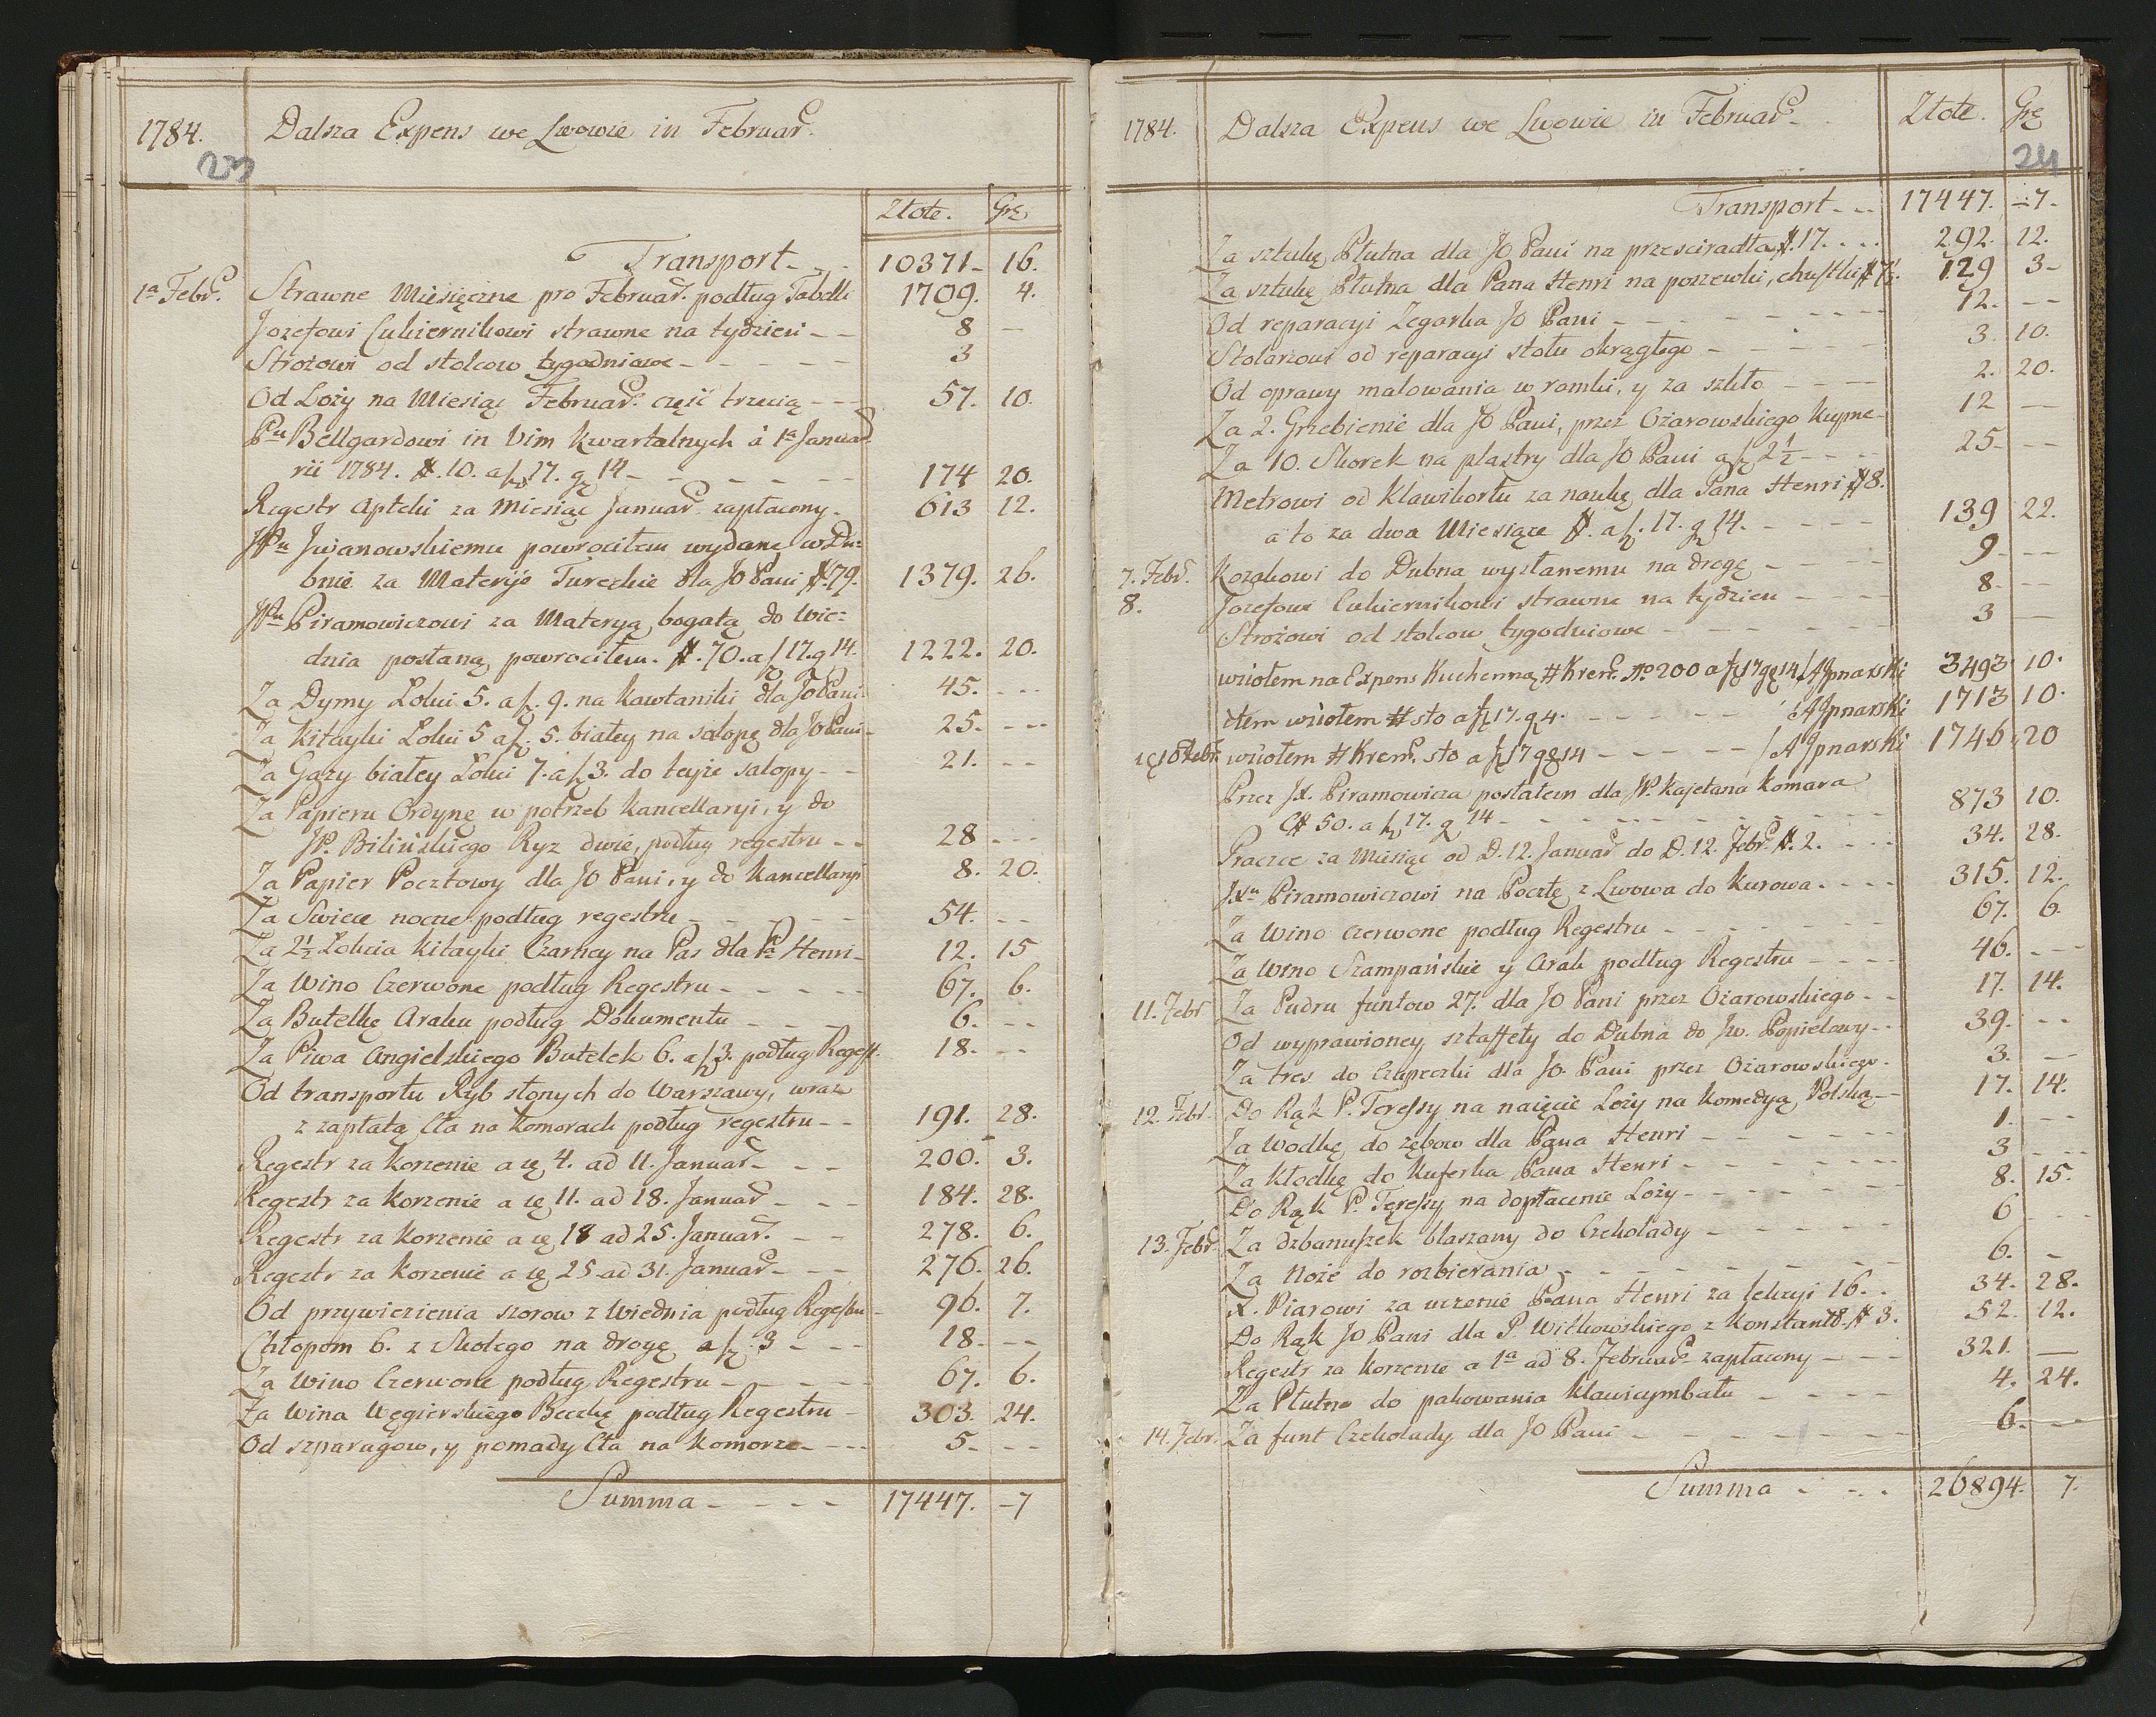 1784. Dalsza Expens we Lwowie in Februar.
23
Złote. Grz
Transport - - 10371 - 16.
1a Febr. Strawne Miesięczne pro Februar. podług Tabelli 1709. 4.
Jozefowi Cukiernikowi strawne na tydzień - - 8 -
Strożowi od stolcow tygodniowe - - - - - 3
Od Loży na Miesiąc Februar. częsć trzecią - - 57. 10.
Pu Bellgardowi in Vim kwartalnych à 1a Janua-
rii 1784. #. 10. a f 17. g 14 - - - - - - 174 20.
Regestr Apteki za Miesiąc Januar. zapłacony - 613 12.
JPu Jwanowskiemu powrociłem wydane w Du=
bnie za Materyie Tureckie dla JO Pani #. 79. 1379. 26.
JPu Piramowiczowi za Materyą bogatą do Wie=
dnia posłaną, powrociłem. #. 70. a f 17. g 14. 1222. 20.
Za Dymy Łokci 5. a f. 9. na kawtaniki dla JO Pani 45. - - -
Za Kitayki Łokci 5 a f. 5. białey na salopę dla JO Pani - 25. - - -
Za Gazy białey Łokci 7. a f 3. do teyże salopy - - 21. - -
Za Papieru Ordynę w potrzeb kancellaryi, y do
JP. Bilińskiego Ryz dwie, podług regestru - - 28 - - -
Za Papier Pocztowy dla JO Pani, y do Kancellaryi 8. 20.
Za Swiece nocne podług regestru - - - - - 54. - -
Za 2½ Łokcia Kitayki Czarney na Pas dla Pa Henri - 12. 15
Za Wino Czerwone podług Regestru - - - - - 67. 6.
Za Butelkę Araku podług Dokumentu - - - - 6. - -
Za Piwa Angielskiego Butelek 6. a f 3. podług Regest. 18. - -
Od transportu Ryb słonych do Warszawy, wraz
z zapłatą Cła na Komorach podług regestru - - 191. 28.
Regestr za Korzenie a 4. ad 11. Januar - - - 200. 3.
Regestr za korzenie a 11. ad 18. Januar - - - 184. 28.
Regestr za korzenie a 18 ad 25. Januar. - - 278. 6.
Regestr za korzenie a 25 ad 31. Januar - - - 276. 26.
Od przywiezienia szorow z Wiednia podług Regestru - 96. 7.
Chłopom 6. z Skolego na drogę a f. 3 - - - 18. - -
Za Wino Czerwone podług Regestru - - - - - 67. 6.
Za Wina Węgierskiego Beczkę podług Regestru - 303. 24.
Od szparagow, y pomady Cła na Komorze - - - 5 - - -
Summa - - - - 17447. - 7
1784. Dalsza Expens we Lwowie in Februar - Złote. Grz
24
Transport - - 17447. - 7 -
Za sztukę Płutna dla JO Pani na przescieradła #. 17. - - - 292. 12.
Za sztukę Płutna dla Pana Henri na poszewki, chustki # 7½. 129 3 -
Od reparacyi Zegarka JO Pani - - - - - - - 12. - -
Stolarzowi od reparacyi stołu okrągłego - - - - - 3. 10.
Od oprawy malowania w ramki, y za szkło - - - - 2. 20.
Za 2. Grzebienie dla JO Pani, przez Ożarowskiego kupne - 12 -
Za 10. Skorek na plastry dla JO Pani a f 2½ - - - 25 - -
Metrowi od Klawikortu za naukę dla Pana Henri # 8.
a to za dwa Miesiące #. a f. 17. g 14. - - - - 139 22.
7. Febr. Kozakowi do Dubna wysłanemu na drogę - - - - 9 - -
8. Jozefowi Cukiernikowi strawne na tydzien - - - - 8 - -
Strożowi od stolcow tygodniowe - - - - - - 3 -
wziołem na Expens Kuchenną # Krem. No 200 a f 17 g 14 / A Jpnarski 3493 10.
item wziołem # sto a f 17. g 4. - - - - - - / A Jpnarski 1713 10.
10 Febr. wziołem # Krem. sto a f 17 g 14 - - - - - / A Jpnarski 1746 20
Przez JX. Piramowicza posłałem dla JP. Kajetana Komara
# 50. a f 17. g 14 - - - - - - - - - 873 10.
Praczce za Miesiąc od D. 12. Januar do D. 12. Febr. #. 2. - - - 34. 28.
JXu Piramowiczowi na Pocztę z Lwowa do Kurowa - - - - 315. 12.
Za Wino czerwone podług Regestru - - - - - - 67. 6.
Za Wino Szampańskie y Arak podług Regestru - - - - 46. - - -
11. Febr. Za Pudru funtow 27. dla JO Pani przez Ożarowskiego - - 17. 14.
Od wyprawioney sztaffety do Dubna do Jw. Popielowy - - 39. - -
Za tres do Czupeczki dla JO. Pani przez Ożarowskiego - 3. -
12. Febr. Do Rąk P. Teressy na naięcie Loży na Komedyą Polską - - 17. 14.
Za Wodkę do zębow dla Pana Henri - - - - - - 1. - -
Za Kłodkę do Kuferka Pana Henri - - - - - - 3 - - -
Do Rąk P. Teressy na dopłacenie Loży - - - - - - 8. 15.
13. Febr. Za dzbanuszek blaszany do Czekolady - - - - - 6 - - -
Za Noże do rozbierania - - - - - - - - 6. -
X. Piarowi za uczenie Pana Henri za lekcyi 16. - - 34. 28.
Do Rąk JO Pani dla P. Witkowskiego z Konstant. # 3. 52. 12.
Regestr za korzenie a 1a ad 8. Februar. zapłacony - - - 321. -
Za Płutno do pakowania Klawicymbału - - - - 4. 24.
14. Febr. Za funt Czekolady dla JO Pani - - - - - - - 6. - -
Summa - - - 26894. 7.